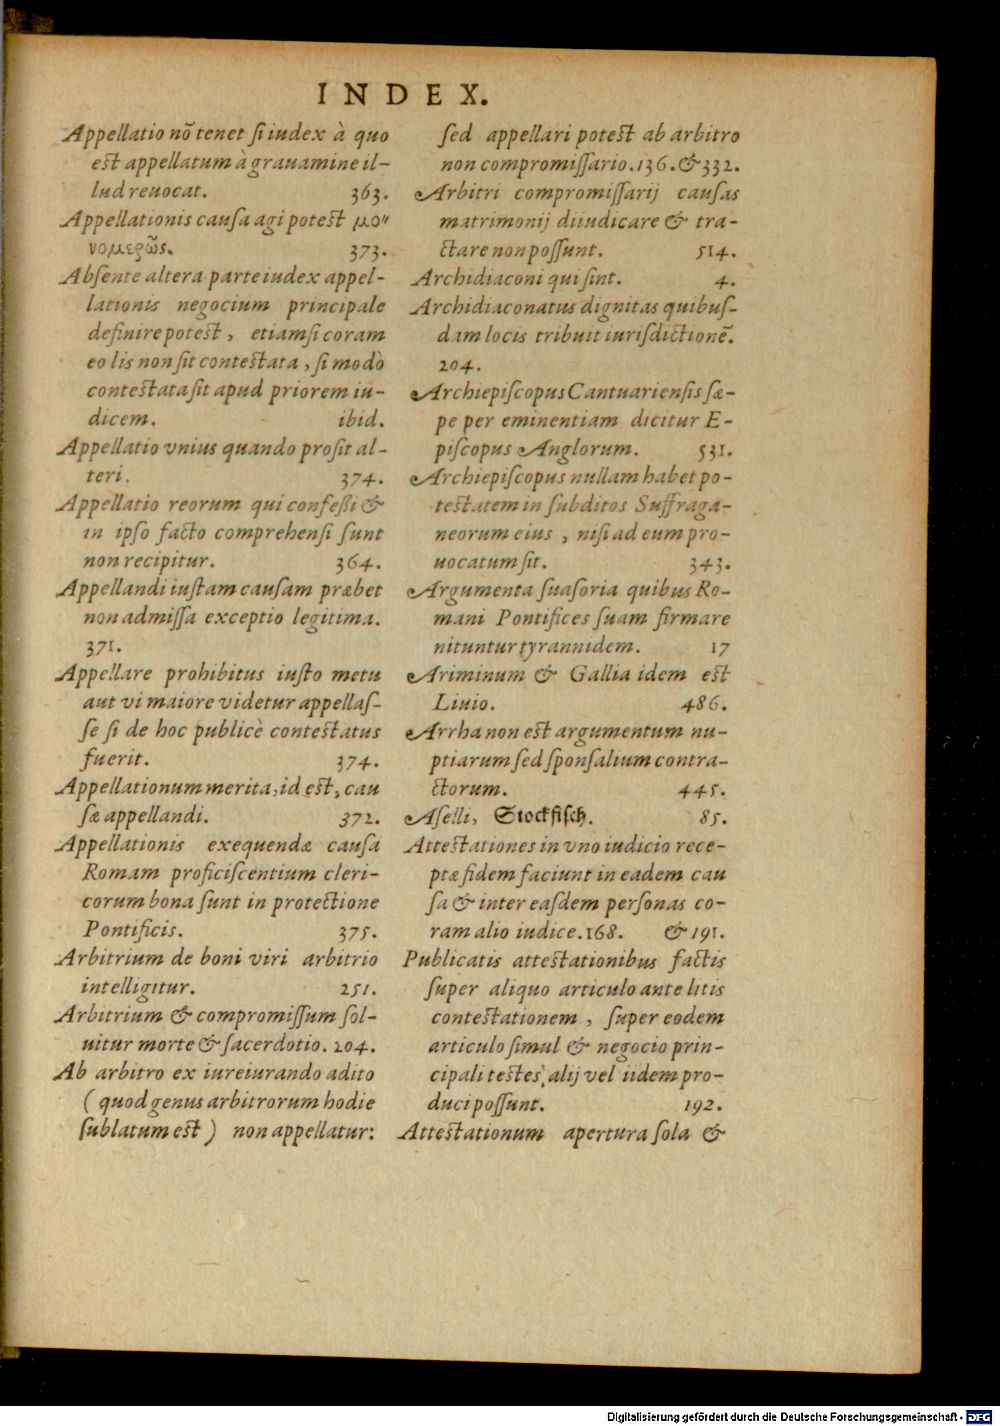 INDEX.
Appellatio nõ tenet ſi iudex à quo
est appellatum à grauamine il-
lud reuocat. 363.
Appellationis cauſa agi potest μο"
νομερῶς. 373.
Absente altera parte iudex appel-
lationis negocium principale
definire potest, etiamſi coram
eo lis non ſit contestata, ſi modò
contestata ſit apud priorem iu-
dicem. ibid.
Appellatio vnius quando proſit al-
teri. 374.
Appellatio reorum qui confeßi &
in ipſo facto comprehenſi ſunt
non recipitur. 364.
Appellandi iustam cauſam præbet
non admiſſa exceptio legitima.
371.
Appellare prohibitus iuſto metu
aut vi maiore videtur appellaſ-
ſe ſi de hoc publicè contestatus
fuerit. 374.
Appellationum merita, id est, cau
ſæ appellandi. 372.
Appellationis exequendæ cauſa
Romam proficiscentium cleri-
corum bona ſunt in protectione
Pontificis. 375.
Arbitrium de boni viri arbitrio
intelligitur. 251.
Arbitrium & compromiſſum ſol-
uitur morte & ſacerdotio. 204.
Ab arbitro ex iureiurando adito
( quod genus arbitrorum hodie
ſublatum est ) non appellatur:
ſed appellari potest ab arbitro
non compromiſſario. 136. & 332.
Arbitri compromiſſarij cauſas
matrimonij diiudicare & tra-
ctare non poſſunt. 514.
Archidiaconi qui ſint. 4.
Archidiaconatus dignitas quibuſ-
dam locis tribuit iuriſdictionẽ.
204.
Archiepiſcopus Cantuariensis ſæ-
pe per eminentiam dicitur E-
piſcopus Anglorum. 531.
Archiepiſcopus nullam habet po-
testatem in ſubditos Suffraga-
neorum eius, niſi ad eum pro-
uocatum ſit. 343.
Argumenta ſuaſoria quibus Ro-
mani Pontifices ſuam firmare
nituntur tyrannidem. 17
Ariminum & Gallia idem est
Liuio. 486.
Arrha non est argumentum nu-
ptiarum ſed ſponſalium contra-
ctorum. 445.
Aſelli, Stockfiſch. 85.
Attestationes in vno iudicio rece-
ptæ fidem faciunt in eadem cau
ſa & inter eaſdem perſonas co-
ram alio iudice. 168. & 191.
Publicatis attestationibus factis
ſuper aliquo articulo ante litis
contestationem, ſuper eodem
articulo ſimul & negocio prin-
cipali testes, alij vel iidem pro-
duci poſſunt. 192.
Attestationum apertura ſola &
Digitalisierung gefördert durch die Deutsche Forschungsgemeinschaft - DFG